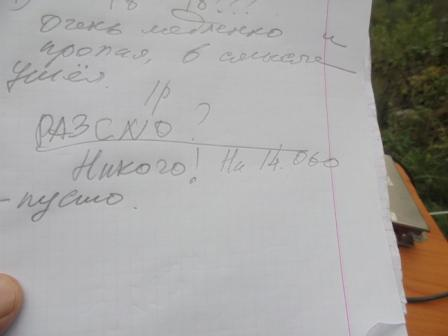 18 18???
очень медленно и
пропал, в смысле
ушёл.
1р
РАЗСNО?
Никого! На 14.060
- пусто.